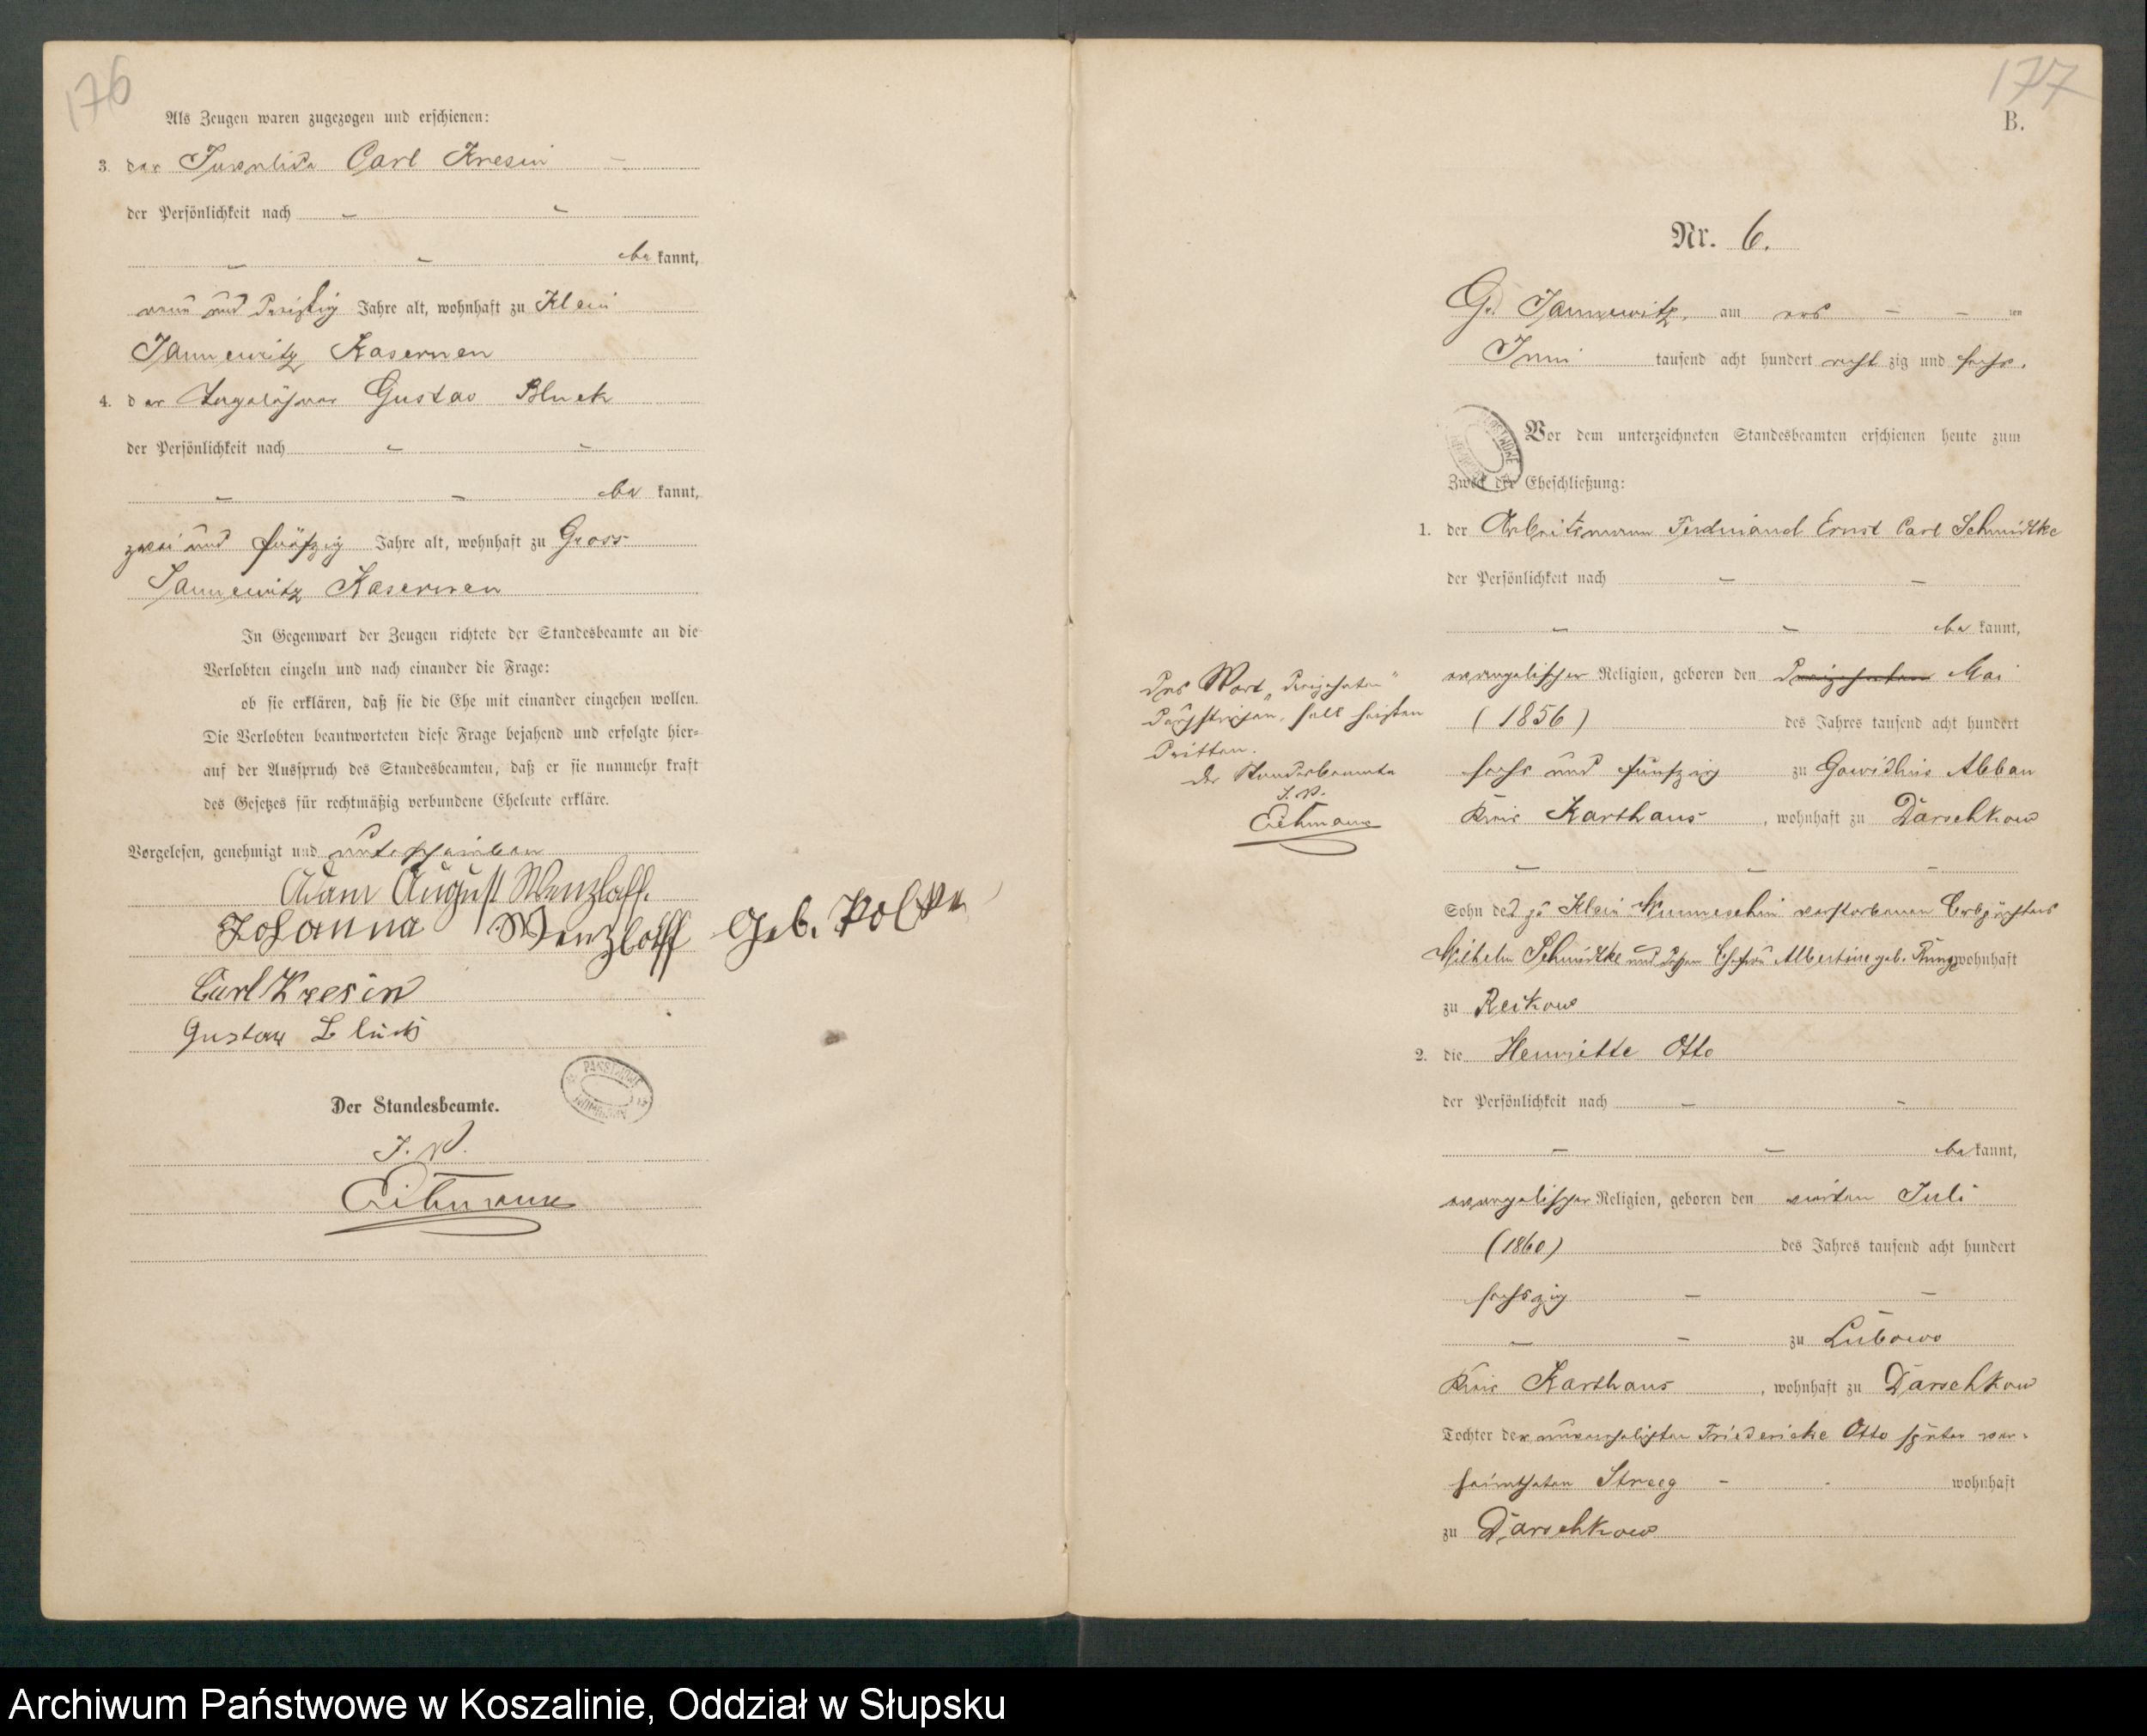 176
Als Zeugen waren zugezogen und erschienen:
3. der Invalide Carl Kresin
der Persönlichkeit nach
be kannt,
neun und dreißig Jahre alt, wohnhaft zu Klein
Jannewitz Kasernen
4. der Tagelöhner Gustav Bluck
der Persönlichkeit nach
be kannt,
zwei und fünfzig Jahre alt, wohnhaft zu Gross
Jannewitz Kasernen
In Gegenwart der Zeugen richtete der Standesbeamte an die
Verlobten einzeln und nach einander die Frage:
ob sie erklären, daß sie die Ehe mit einander eingehen wollen.
Die Verlobten beantworteten diese Frage bejahend und erfolgte hier=
auf der Ausspruch des Standesbeamten, daß er sie nunmehr kraft
des Gesetzes für rechtmäßig verbundene Eheleute erkläre.
Vorgelesen, genehmigt und unterschrieben
Adam August Wenzlaff.
Johanna Wenzlaff geb. Polzin
Carl Kresin
Gustav Blück
Der Standesbeamte.
J. V.
177
B.
Nr. 6.
Gr. Jannewitz, am ten
Juni tausend acht hundert acht zig und sechs.
Vor dem unterzeichneten Standesbeamten erschienen heute zum
Zweck der Eheschließung:
1. der Arbeitsmann Ferdinand Ernst Carl Schmidtke
der Persönlichkeit nach
be kannt,
evangelischer Religion, geboren den dreizehnten Mai
(1856) des Jahres tausend acht hundert
sechs und fünfzig zu Gowidlino Abbau
Kreis Karthaus, wohnhaft zu Darschkow
Das Wort „dreizehnten"
durchstrichen, soll heißen
dritten.
Der Standesbeamte
J. V.
Sohn des zu Klein verstorbenen Erbpächters
Wilhelm Schmidtke und dessen Ehefrau Albertine geb. Runge wohnhaft
zu Reckow
2. die Henriette Otto
der Persönlichkeit nach
be kannt,
evangelischer Religion, geboren den vierten Juli
(1860) des Jahres tausend acht hundert
sechszig
zu Lubowo
Kreis Karthaus, wohnhaft zu Darschkow
Tochter der unverehelichten Friedericke Otto später ver=
heiratheten Streeg wohnhaft
zu Darschkow
Archiwum Państwowe w Koszalinie, Oddział w Słupsku